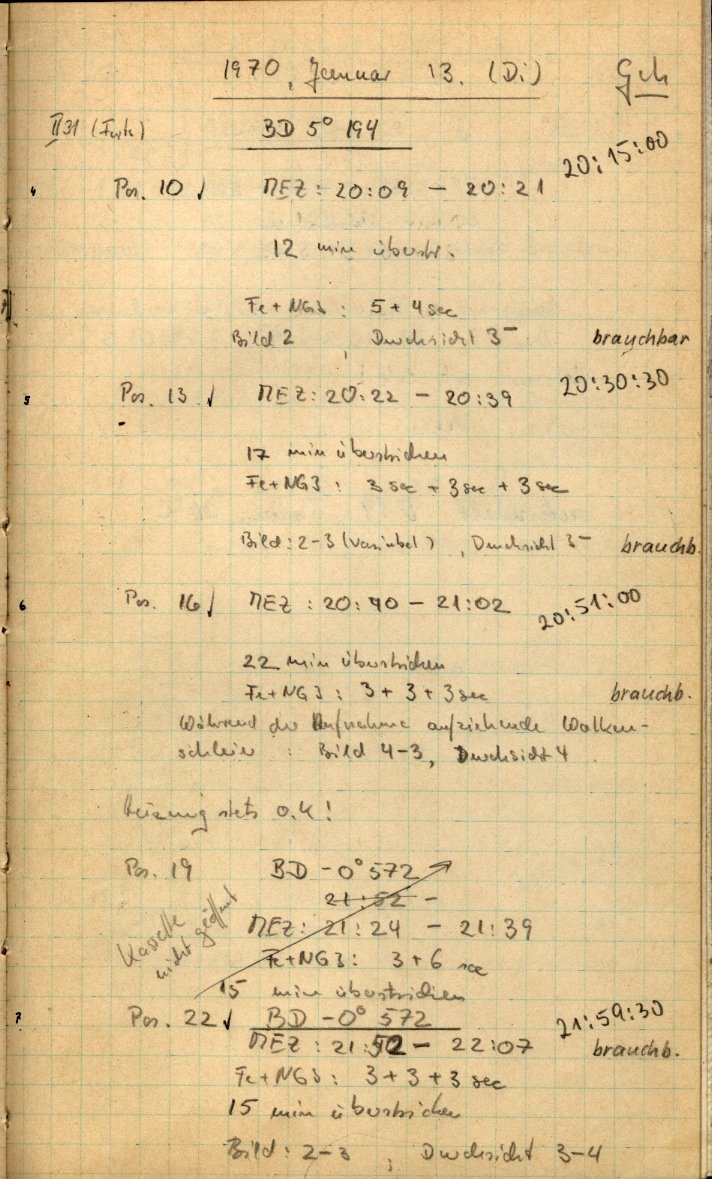 1970, Januar 13. (Di) Geh
II 31 (Forts.) BD 5° 194
4 Pos. 10 √ MEZ: 20:09 – 20:21 20:15:00
12 min überstr.
Fe+NG3 : 5 + 4 sec
Bild 2 , Durchsicht 3⁻ brauchbar
5 Pos. 13 √ MEZ: 20:22 – 20:39 20:30:30
17 min überstrichen
Fe+NG3 : 3 sec + 3 sec + 3 sec
Bild: 2-3 (variabel) , Durchsicht 3⁻ brauchb.
6 Pos. 16 √ MEZ : 20:40 – 21:02 20:51:00
22 min überstrichen
Fe+NG3 : 3 + 3 + 3 sec brauchb.
Während der Aufnahme aufziehende Wolken-
schleier : Bild 4-3, Durchsicht 4
Heizung stets 0.4!
Pos. 19 BD -0° 572
21:52 –
MEZ: 21:24 – 21:39
Kassette
nicht geöffnet
Fe+NG3: 3+6 sec
15 min überstrichen
7 Pos. 22 √ BD -0° 572 21:59:30
MEZ : 21:52 – 22:07 brauchb.
Fe+NG3 : 3+3+3 sec
15 min überstrichen
Bild: 2-3 ; Durchsicht 3-4